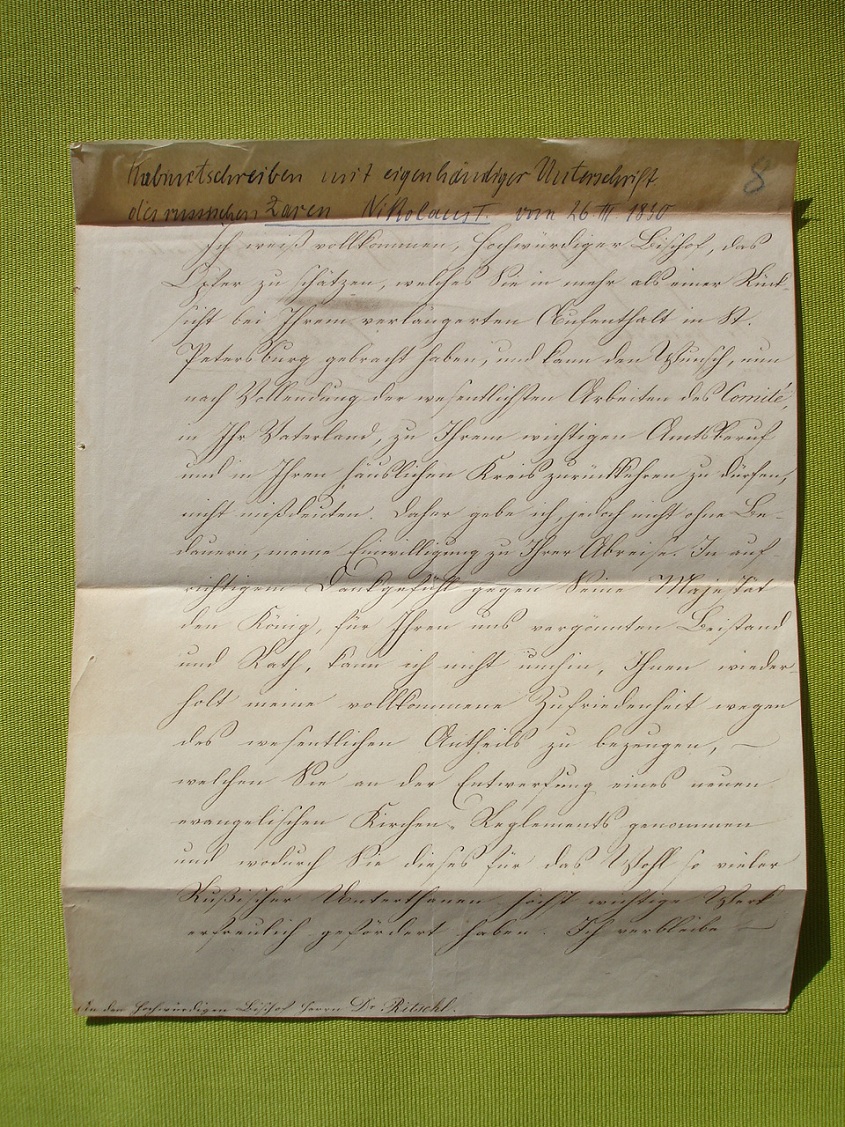 Kabinetschreiben mit eigenhändiger Unterschrift
8
des russischen Zaren Nikolaus I. vom 26 III. 1830
Ich weiß vollkommen, Hochwürdiger Bischof, das
Opfer zu schätzen, welches Sie in mehr als einer Rück-
sicht bei Ihrem verlängerten Aufenthalt in St.
Petersburg gebracht haben, und kann den Wunsch, nun
nach Vollendung der wesentlichsten Arbeiten des Comité,
in Ihr Vaterland, zu Ihrem wichtigen Amtsberuf
und in Ihren häuslichen Kreis zurückkehren zu dürfen,
nicht mißdeuten. Daher gebe ich, jedoch nicht ohne Be-
dauern, meine Einwilligung zu Ihrer Abreise. In auf-
richtigem Dankgefühl gegen Seine Majestät
den König, für Ihren uns vergönnten Beistand
und Rath, kann ich nicht umhin, Ihnen wieder-
holt meine vollkommene Zufriedenheit wegen
des wesentlichen Antheils zu bezeugen, —
welchen Sie an der Entwerfung eines neuen
evangelischen Kirchen-Reglements genommen
und wodurch Sie dieses für das Wohl so vieler
Rußischer Unterthanen höchst wichtige Werk
erfreulich gefördert haben. Ich verbleibe —
An den Hochwürdigen Bischof Herrn Dr. Ritschl.